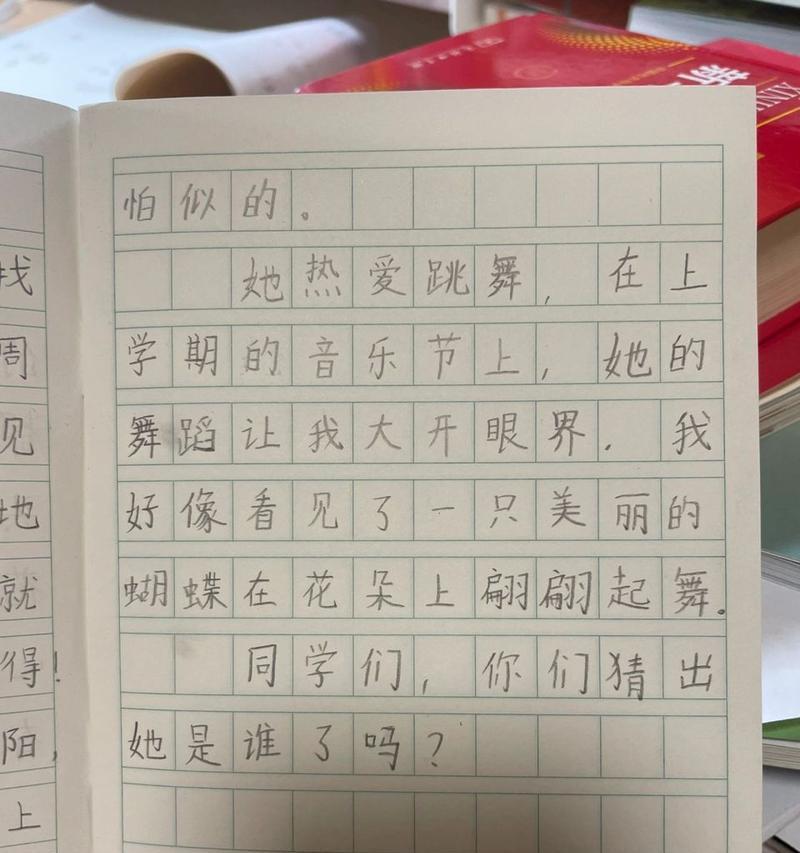 新
XINH
找
周
见
地
就
得!
阳,
上
怕似的。
她热爱跳舞,在上
学期的音乐节上,她的
舞蹈让我大开眼界.我
好像看见了一只美丽的
蝴蝶在花朵上翩翩起舞。
同学们,你们猜出
她是谁了吗?